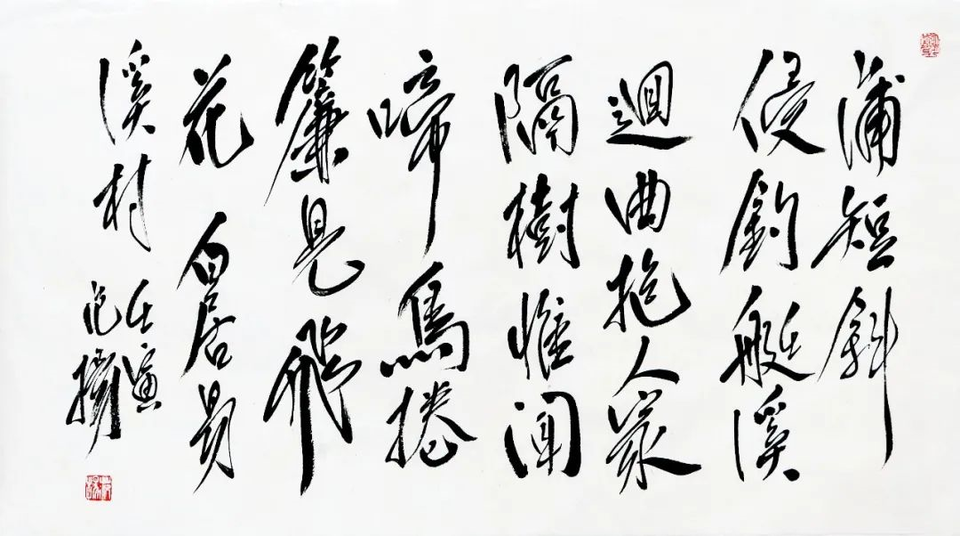 蒲短斜
侵釣艇溪
迴曲抱人家
隔樹惟聞
啼鳥捲
簾見飛
花 白居易
溪村 壬寅
范揚